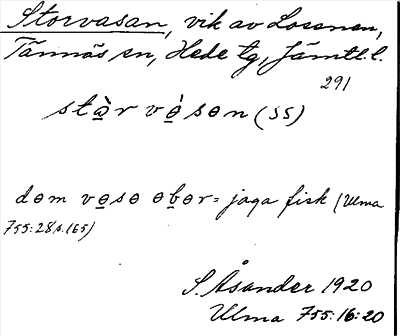 Storvasan, vik av Lossnen,
Tännäs sn, Hede tg, Jämtl. l.
291
stɑ̀r vɑ̀sɵn (SS)
dɵm vɑsɵ ɵbɵr = jaga fisk (Ulma
755:28 s. 165)
S. Åsander 1920
Ulma 755:16:20